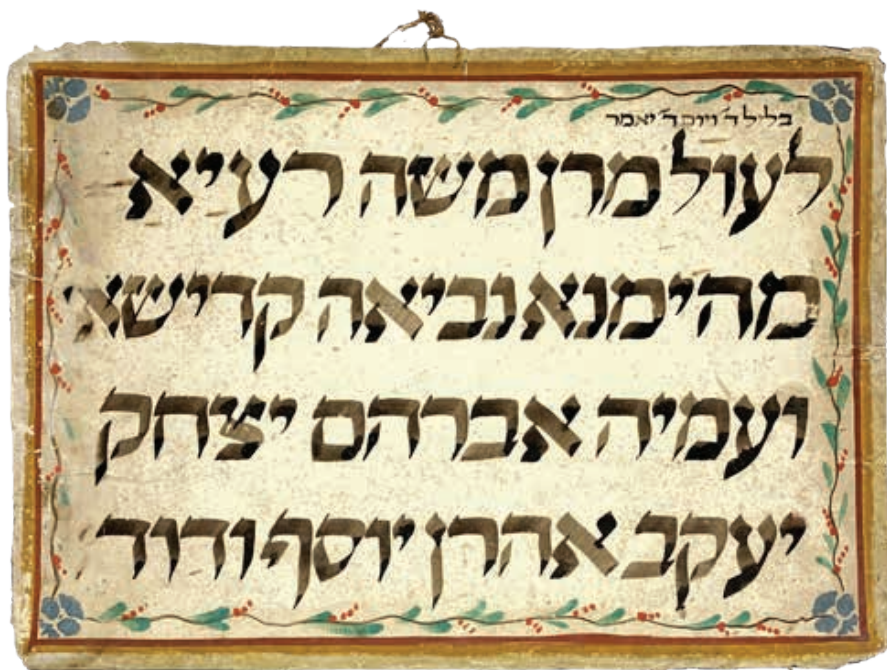 בליל ד׳ ויום ד׳ יאמר
לעול מרן משה רעיא
מהימנא נביאה קדישא
ועמיה אברהם יצחק
יעקב אהרן יוסף ודוד